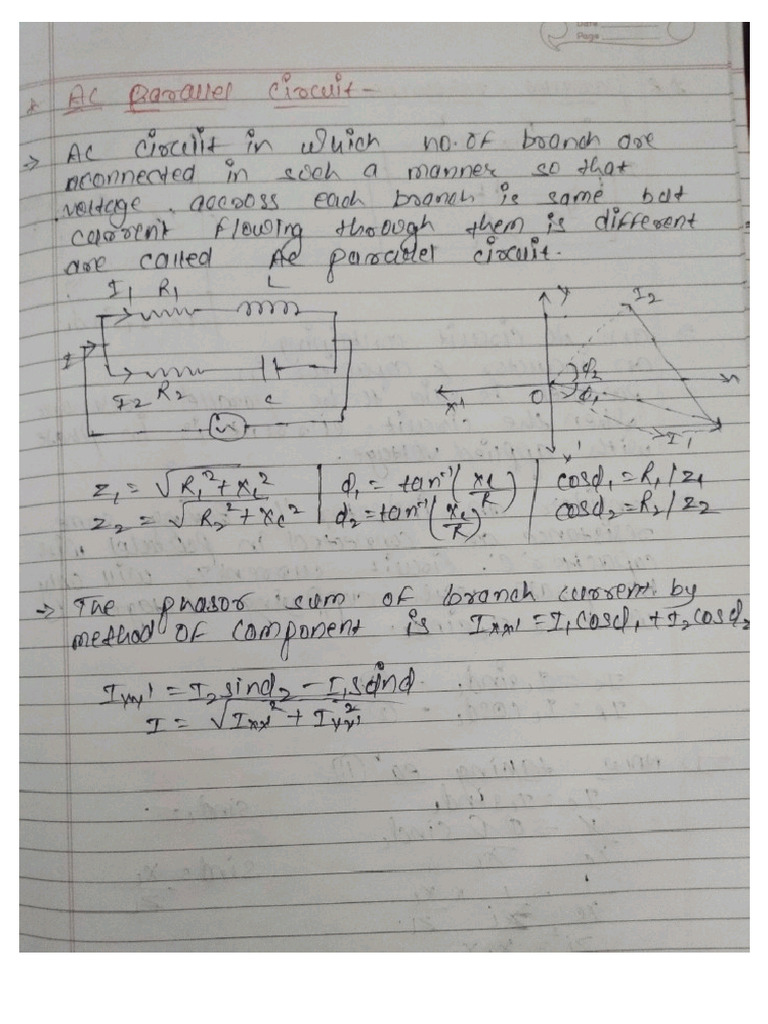 Date
Page
* AC Parallel Circuit -
→ AC circuit in which no. of branch are
connected in such a manner so that
voltage accross each branch is same but
current flowing through them is different
are called AC parallel circuit.
I1 R1 L
I
I2 R2 c
Y I2
φ2
x' O φ1 x
I1
Y'
Z1 = √R1²+XL² | φ1 = tan⁻¹(XL/R) | cosφ1 = R1/Z1
Z2 = √R2²+Xc² | φ2 = tan⁻¹(Xc/R) | cosφ2 = R2/Z2
→ The phasor sum of branch current by
method of component is Ixx' = I1cosφ1 + I2cosφ2
Iyy' = I2sinφ2 - I1sinφ1
I = √Ixx'² + Iyy'²